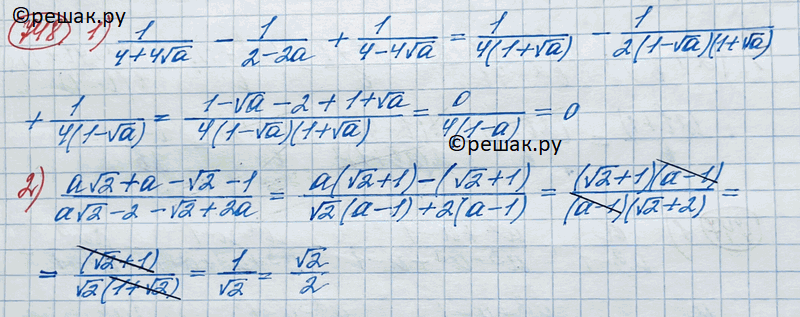 ©решак.ру
748) 1) 1/(4+4√a) - 1/(2-2a) + 1/(4-4√a) = 1/(4(1+√a)) - 1/(2(1-√a)(1+√a))
+ 1/(4(1-√a)) = (1-√a-2+1+√a)/(4(1-√a)(1+√a)) = 0/(4(1-a)) = 0
©решак.ру
2) (a√2+a-√2-1)/(a√2-2-√2+2a) = (a(√2+1)-(√2+1))/(√2(a-1)+2(a-1)) = ((√2+1)(a-1))/((a-1)(√2+2)) =
= (√2+1)/(√2(1+√2)) = 1/√2 = √2/2
©решак.ру